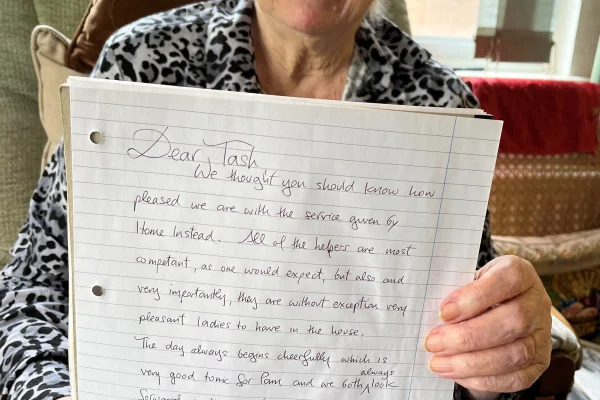 Dear Tash
We thought you should know how
pleased we are with the service given by
Home Instead. All of the helpers are most
competant, as one would expect, but also and
very importantly, they are without exception very
pleasant ladies to have in the house.
The day always begins cheerfully which is
always
very good tonic for Pam and we both look
forward